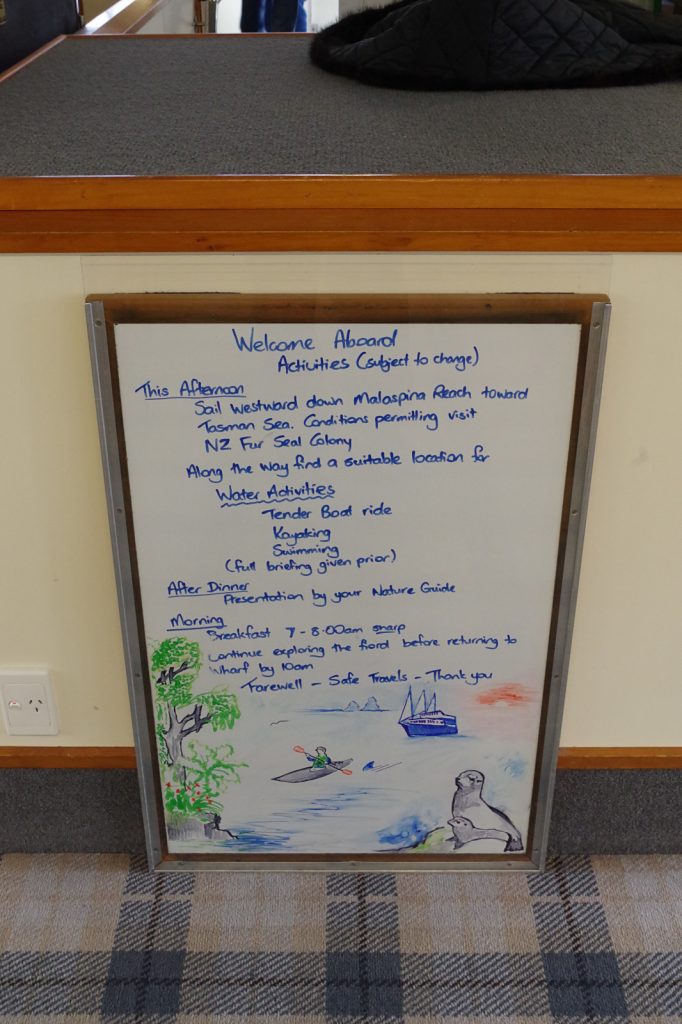 Welcome Aboard
Activities (subject to change)
This Afternoon
Sail westward down Malaspina Reach toward
Tasman Sea. Conditions permitting visit
NZ Fur Seal Colony
Along the way find a suitable location for
Water Activities
Tender Boat ride
Kayaking
Swimming
(full briefing given prior)
After Dinner
Presentation by your Nature Guide
Morning
Breakfast 7-8.00am sharp
continue exploring the fiord before returning to
wharf by 10am
Farewell - Safe Travels - Thank you